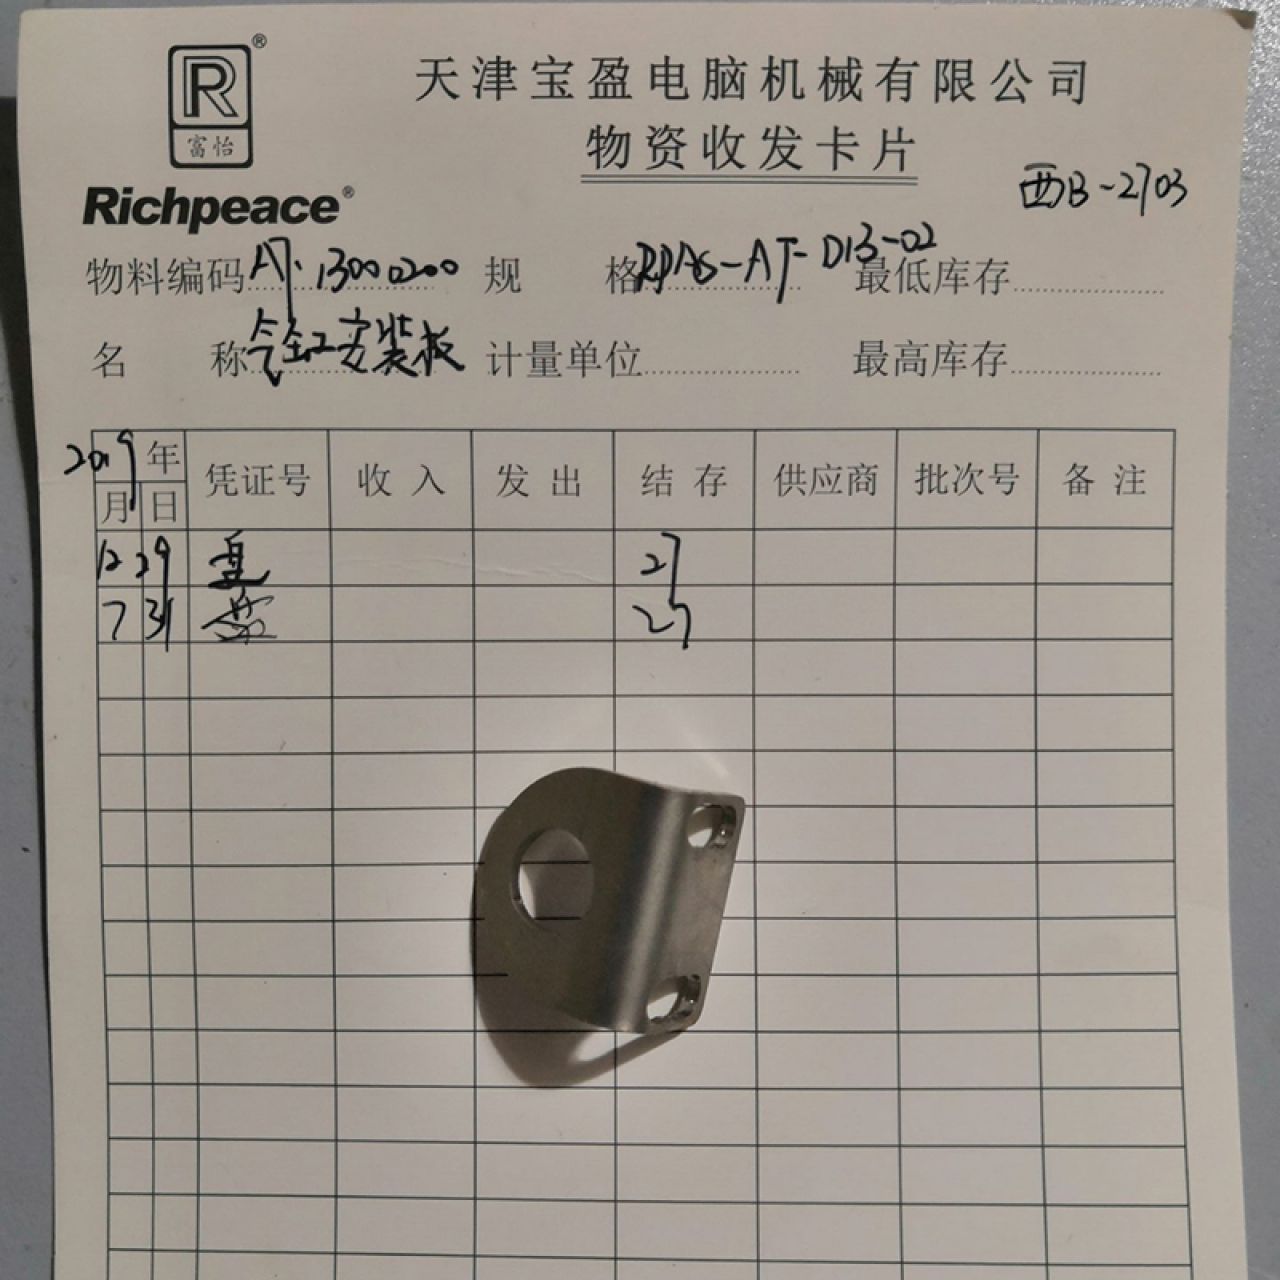 R
®
富怡
Richpeace®
天津宝盈电脑机械有限公司
物资收发卡片
西B-2703
物料编码 AT.13000200 规格 -AT-D13-02 最低库存
名称 气缸安装板 计量单位 最高库存
2019年 凭证号 收入 发出 结存 供应商 批次号 备注
月 日
12 29 27
7 31 盘 27